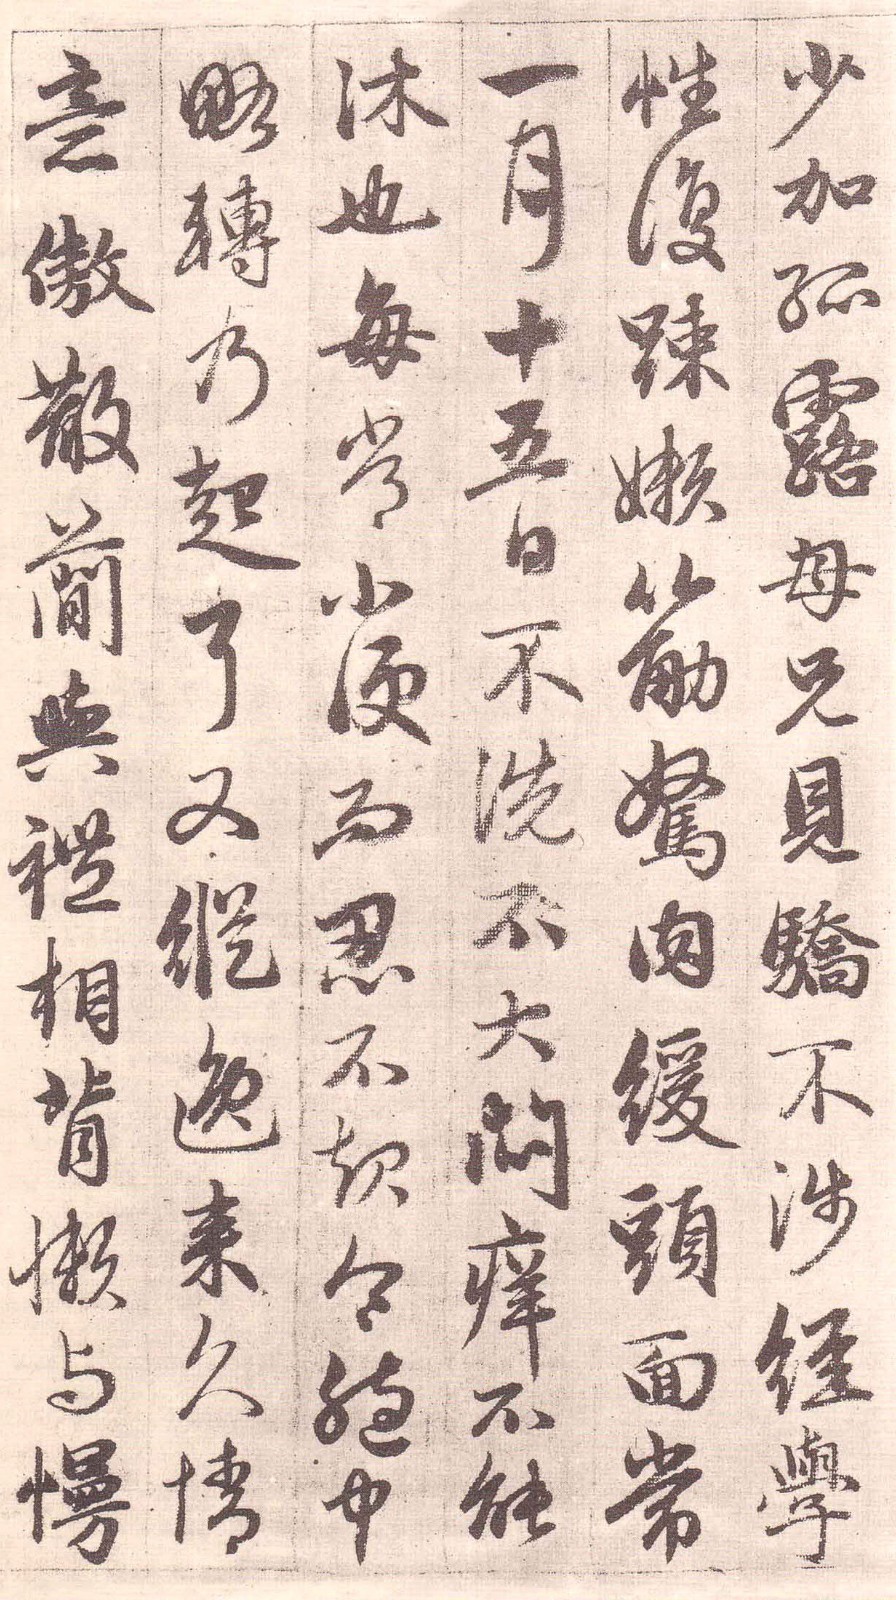 少加孤露母兄見驕不涉經學
性復疎嬾筋駑肉緩頭面常
一月十五日不洗不大悶癢不能
沐也每常小便而忍不起令胞中
略轉乃起耳又縱逸来久情
意傲散簡與禮相背懶与慢